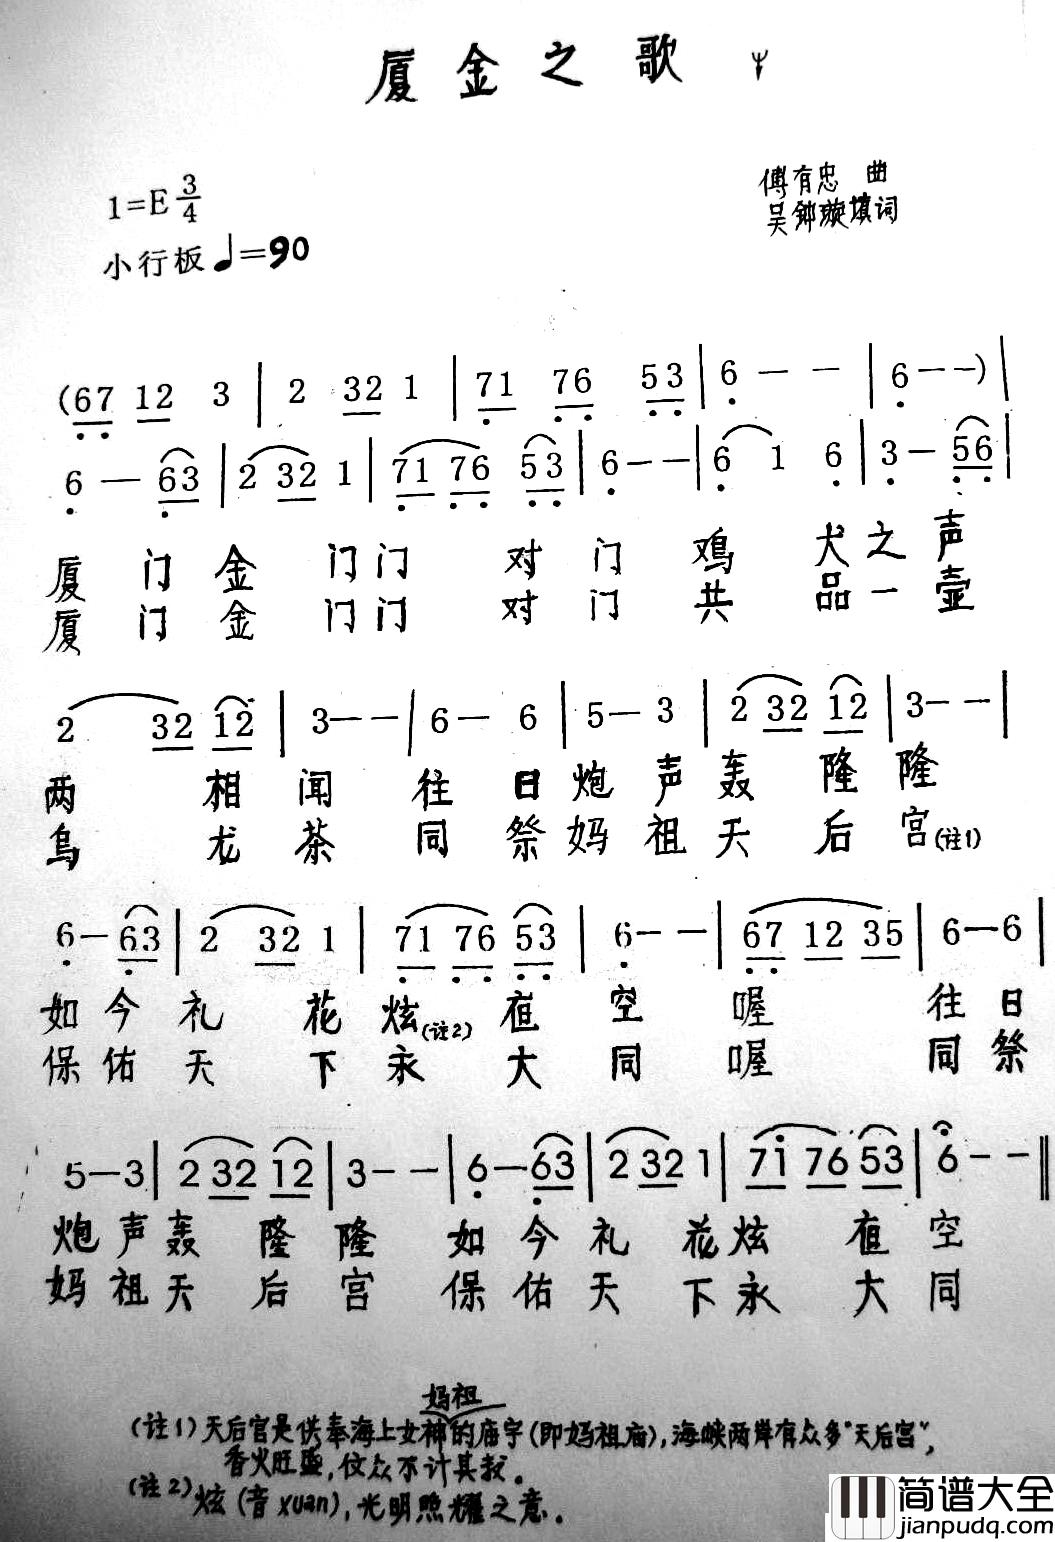 厦金之歌
1=E 3/4
傅有忠 曲
吴 璇填词
小行板 ♩=90
(67 12 3 | 2 32 1 | 71 76 53 | 6 - - | 6 - - ) |
6 - 63 | 2 32 1 | 71 76 53 | 6 - - | 6 1 6 | 3 - 56 |
厦 门 金 门 门 对 门 鸡 犬 之 声
厦 门 金 门 门 对 门 共 品 一 壶
2 32 12 | 3 - - | 6 - 6 | 5 - 3 | 2 32 12 | 3 - - |
两 相 闻 往 日 炮 声 轰 隆 隆
乌 龙 茶 同 祭 妈 祖 天 后 宫(注1)
6 - 63 | 2 32 1 | 71 76 53 | 6 - - | 67 12 35 | 6 - 6 |
如 今 礼 花 炫(注2) 夜 空 喔 往 日
保 佑 天 下 永 大 同 喔 同 祭
5 - 3 | 2 32 12 | 3 - - | 6 - 63 | 2 32 1 | 71 76 53 | 6 - - ‖
炮 声 轰 隆 隆 如 今 礼 花 炫 夜 空
妈 祖 天 后 宫 保 佑 天 下 永 大 同
妈祖
(注1)天后宫是供奉海上女神的庙宇(即妈祖庙),海峡两岸有众多"天后宫",
香火旺盛,信众不计其数。
(注2)炫(音xuan),光明照耀之意。
简谱大全
jianpudq.com